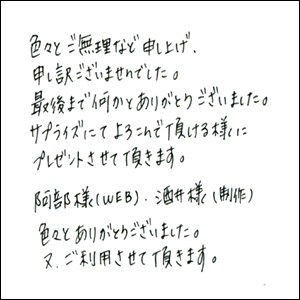 色々とご無理など申し上げ、
申し訳ございませんでした。
最後まで何かとありがとうございました。
サプライズにてよろこんで頂ける様に
プレゼントさせて頂きます。
阿部様(WEB)・酒井様(制作)
色々とありがとうございました。
又、ご利用させて頂きます。